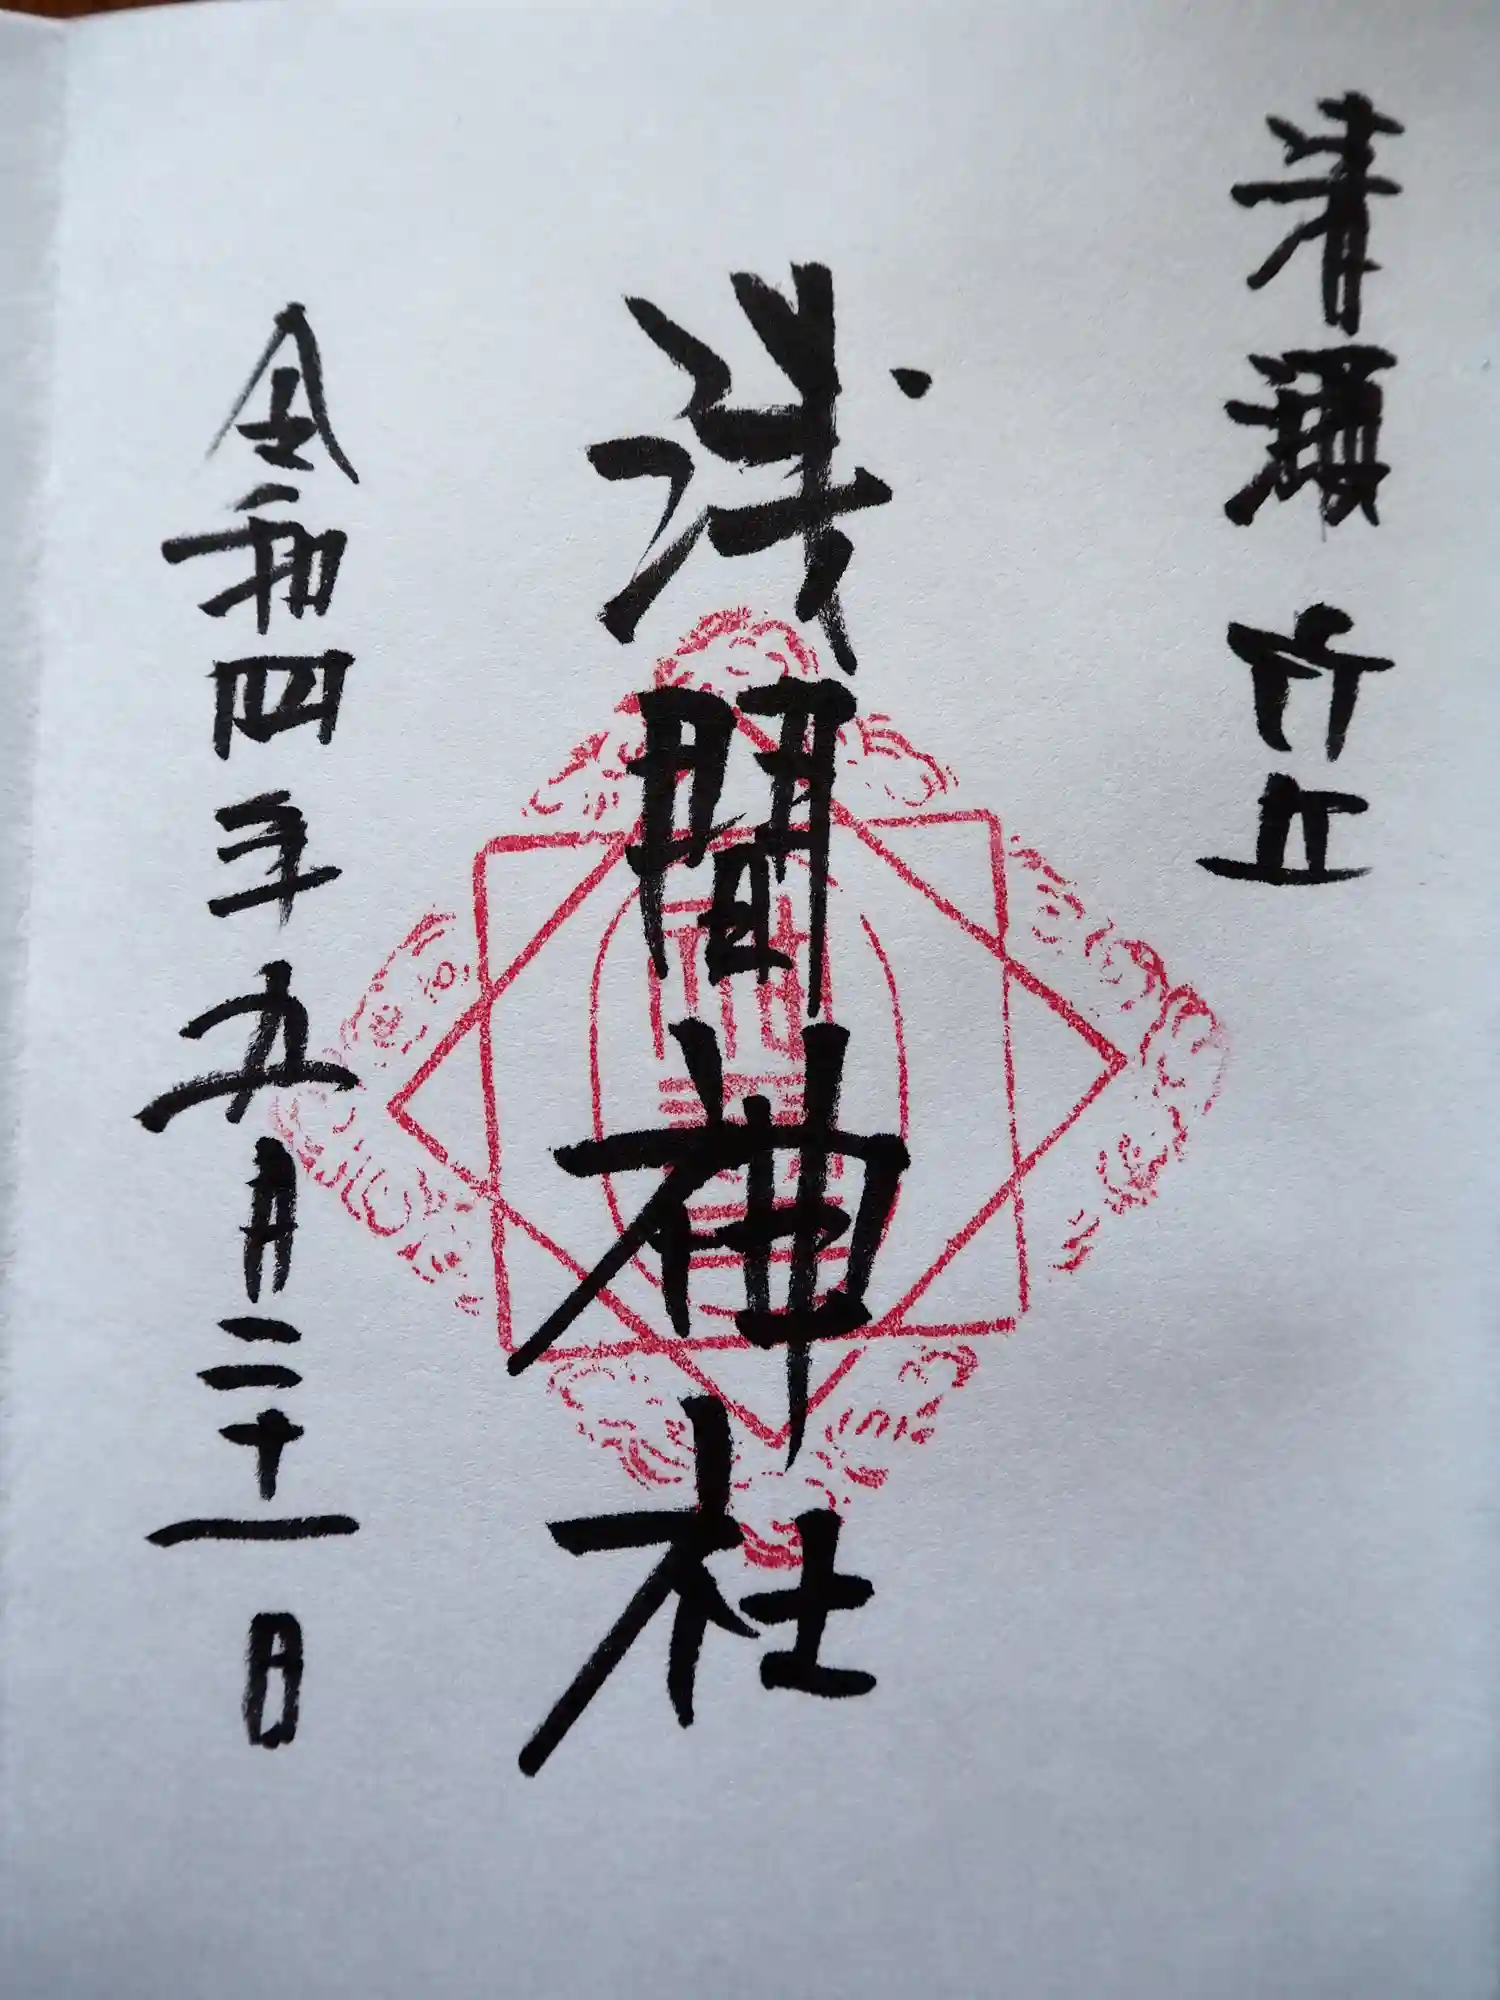 清瀬 竹丘
浅間神社
令和四年五月二十一日